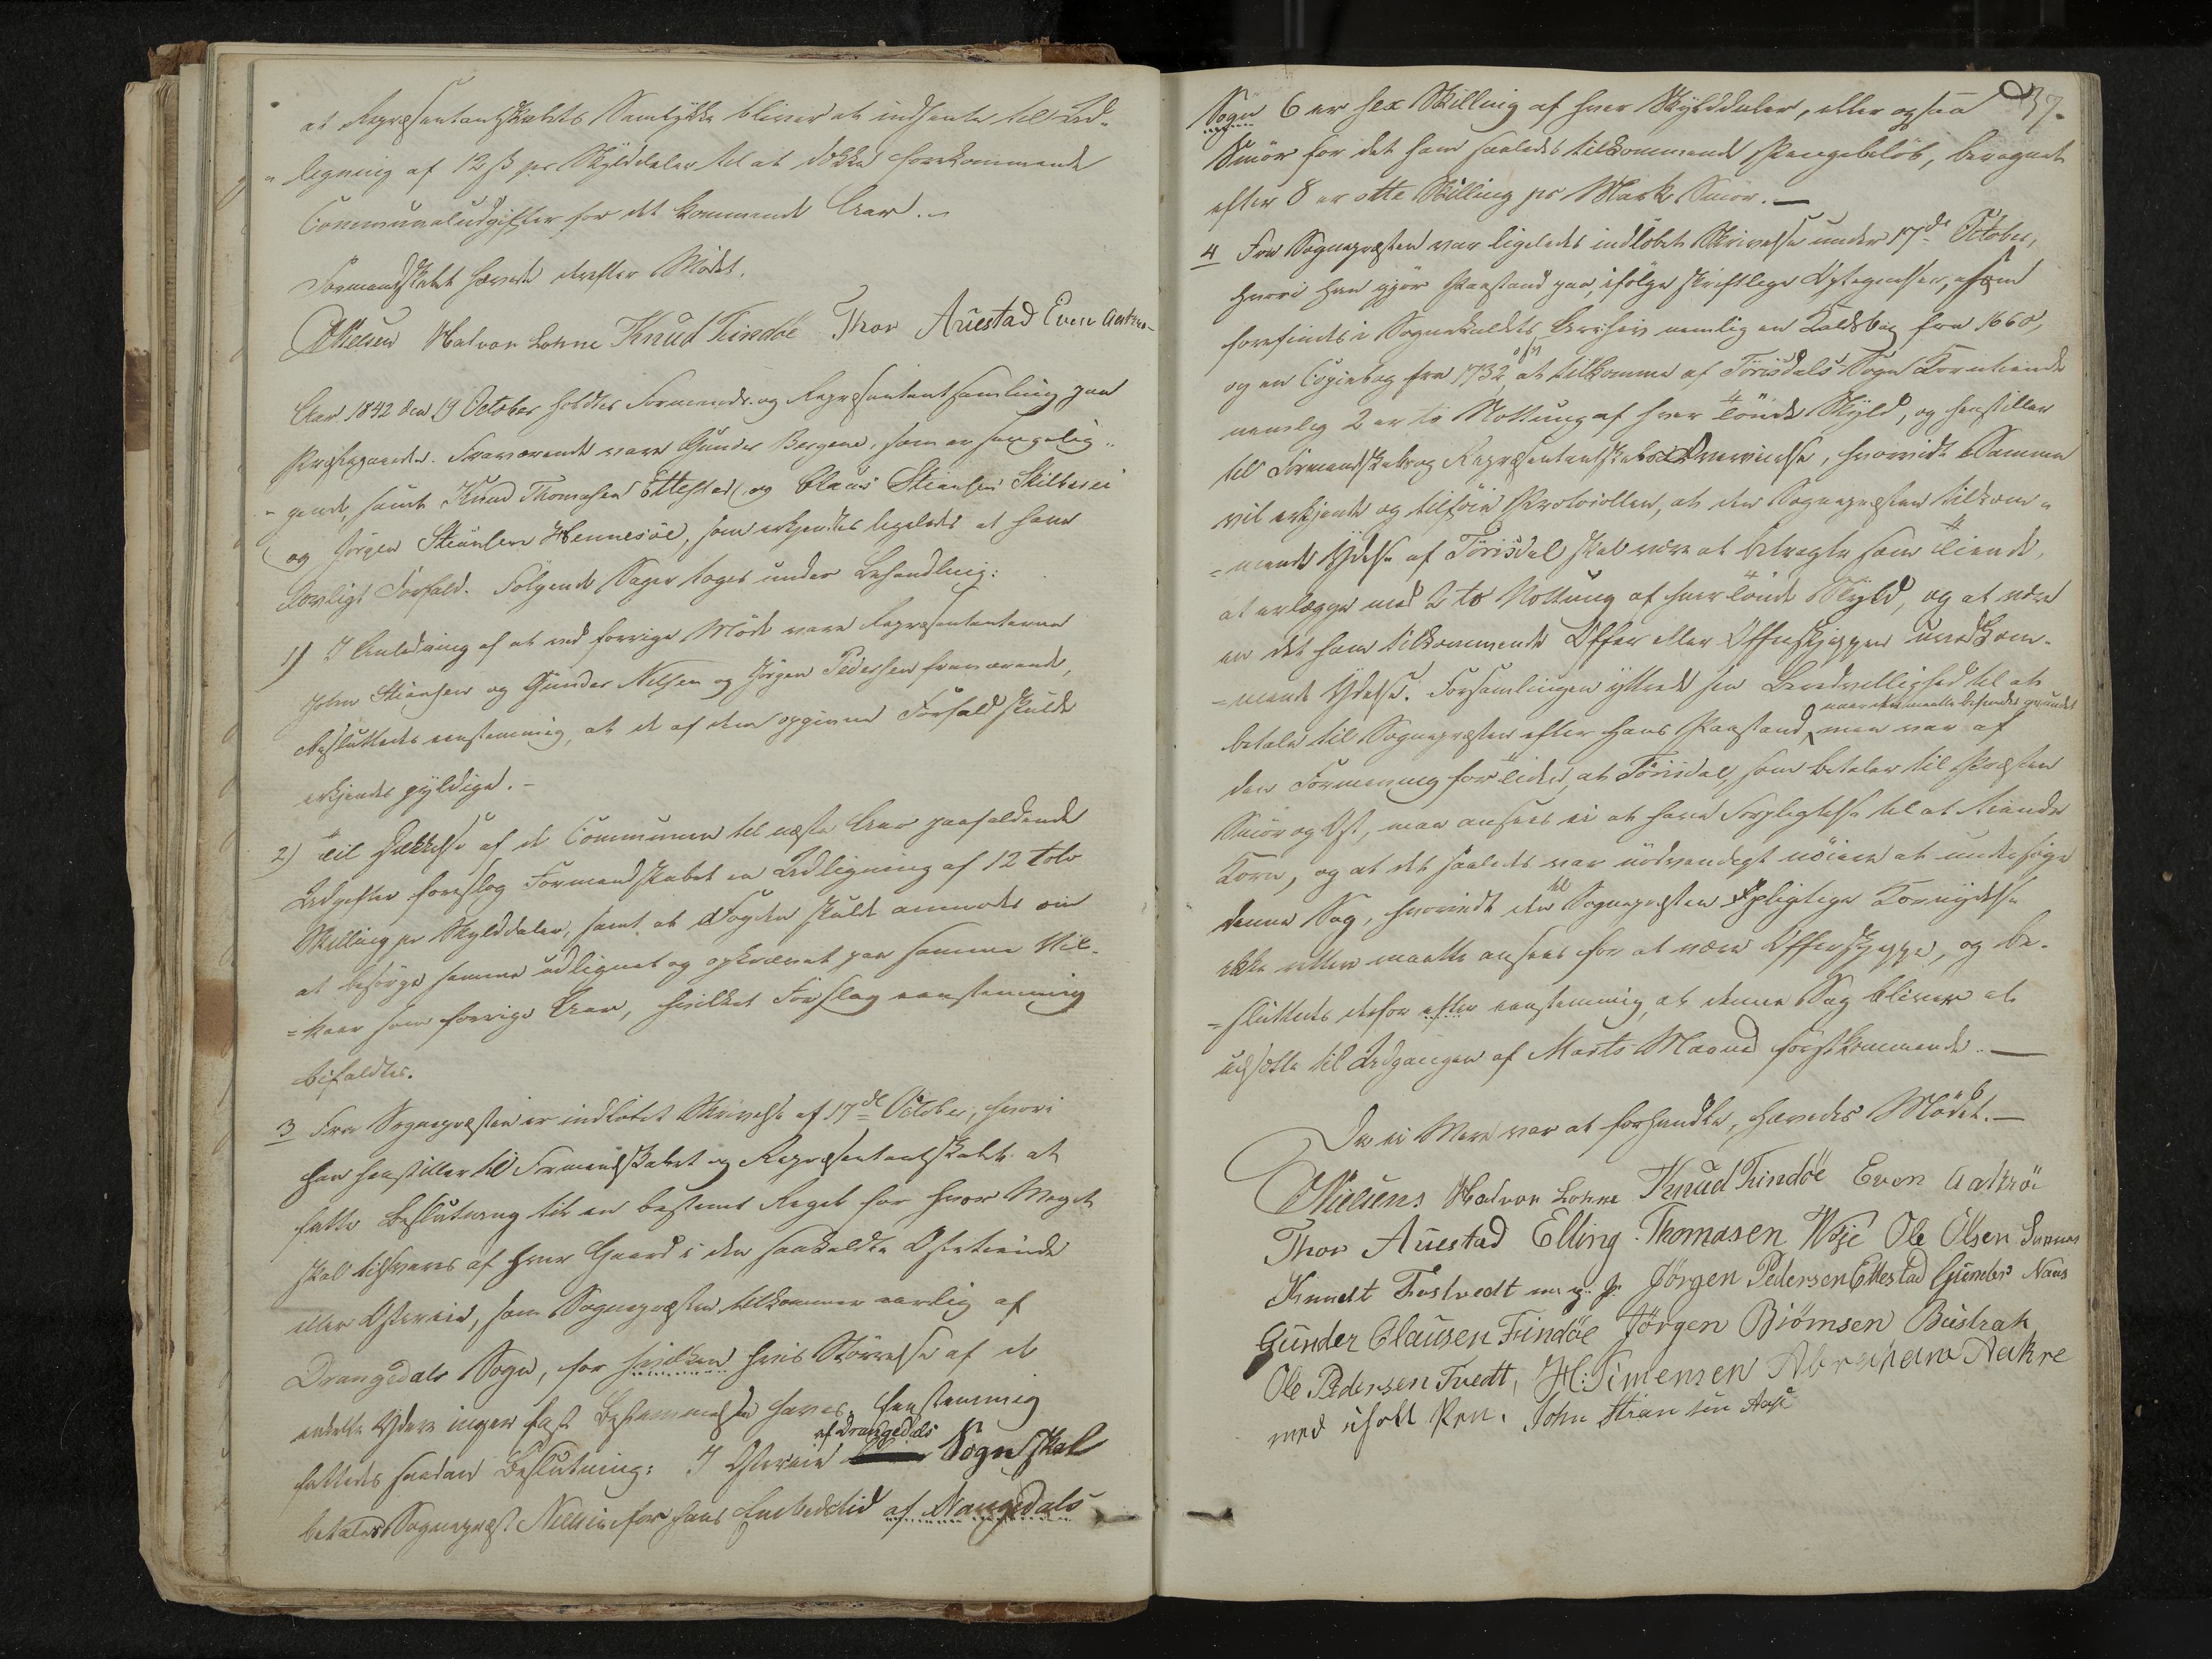 at Repræsentantskabets Samtykke bliver at indhente til Ud-
ligning af 12 ß pr Skylddaler til at dække forekommende
Communaludgifter for det kommende Aar.-
Formandskabet hævede derefter Mødet.
Nielsen Halvor Lohne Knud Tindöe Thor Auestad Even Aakre
Aar 1842 den 19 October holdtes Formands- og Repræsentantsamling paa
Præstegaarden. Fraværende vare Gunder Bergene, som er sengelig-
gende, samt Knud Thomassen Ettestad og Claus Stiansen Stilbuei
og Jörgen Stiansen Hennesöe, som erkjendtes ligeledes at have
lovligt Forfald. Følgende Sager toges under Behandling:
1) I Anledning af at ved forrige Møde vare Repræsentanterne
John Stiansen og Gunder Nilsen og Jörgen Pedersen fraværende,
besluttedes eenstemmig, at de af dem opgivne Forfald skulde
erkjendes gyldige.-
2) Til Dækkelse af de Communen til næste Aar paafaldende
Udgifter foreslog Formandskabet en Udligning af 12 tolv
Skilling pr Skylddaler, samt at Fogden skulde anmodes om
at besørge samme udlignet og opkrævet paa samme Vil-
=kaar som forrige Aar, hvilket Forslag eenstemmig
bifaldtes.
3 Fra Sognepræsten er indløbet Skrivelse af 17de October, hvori
han henstiller til Formandskabet og Repræsentantskabet at
fatte Beslutning til en bestemt Regel for hvor Meget
skal tilsvares af hver Gaard i den saakaldte Ostetiende
eller Ostereie, som Sognepræsten tilkommer aarlig af
Drangedals Sogn, for hvilken hvis Størrelse af de
enkelte Ydere ingen fast Bestemmelse haves. Eenstemmig
fattedes saadan Beslutning: I Ostereie af Drangedals Sogn skal
betales Sognepræst Nielsen for hans Embedstid af Drangedals
37.
Sogn 6 er sex Skilling af hver Skylddaler, eller ogsaa
Smör for det ham saaledes tilkommende Pengebeløb, beregnet
efter 8 er otte Skilling pr Mark Smör.—
4 Fra Sognepræsten var ligeledes indløbet Skrivelse under 17de October,
hvori han gjør Paastand paa, ifølge skriftlige Optegnelser, som
forefindes i Sognekaldets Archiv nemlig en Kaldsbog fra 1660,
og en Copiebog fra 1732, at tilkomme af Törisdals Sogn Korntiende
nemlig 2 er to Nottung af hver Tönde Skyld, og henstiller
til Formandskabs og Repræsentantskabs Overveielse, hvorvidt Samme
vil erkjende og tilføie Protocollen, at den Sognepræsten tilkom-
=mende Ydelse af Törisdal skal være at betragte som Tiende,
at erlægge med 2 to Nottung af hver Tönde Skyld, og at være
en det ham tilkommende Offer eller Offerskjeppe uvedkom-
=mende Ydelse. Forsamlingen yttrede sin Beredvillighed til at
betale til Sognepræsten efter hans Paastand, naar den maatte befindes grundet men var af
den Formening forledes, at Törisdal, som betaler til Præsten
Smör og Ost, maa ansees ei at have Forpligtelse til at tiende
Korn, og at det saaledes var nödvendigt nöiere at undersöge
denne Sag, hvorvidt den til Sognepræsten pligtige Kornydelse
ikke rettere maatte ansees for at være Offerskjeppe, og be-
=sluttedes derfor efter eenstemmig, at denne Sag bliver at
udsætte til Udgangen af Marts Maaned førstkommende.—
Da ei Mere var at forhandle, hævedes Mødet.—
Nielsens Halvor Lohne Knud Tindöe Even Aakre
Thor Auestad Elling Thomasen Woje Ole Olsen Sannes
Knudt Tostvedt m. p. P. Jörgen Pedersen Ettestad Gunder Naas
Gunder Clausen Tindöe Jörgen Biörnsen Bustrak
Ole Pedersen Tvedt, H: Simensen Abraham Aakre
med ihold Pen. John Stian sen Aase